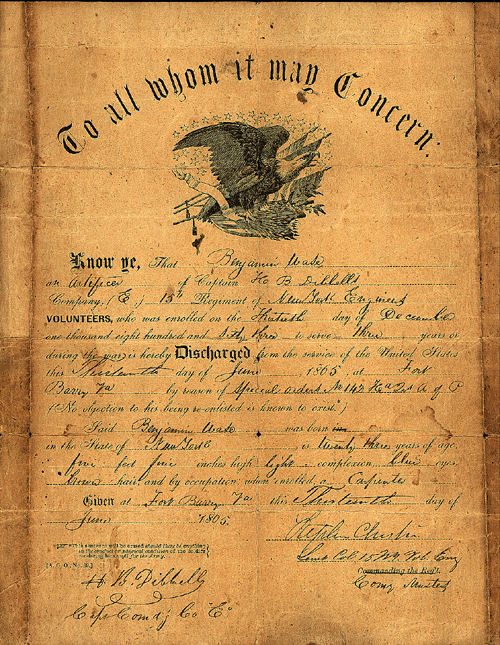 To all whom it may Concern:
Know ye, That Benjamin Wade
an Artificer of Captain H B Dibbells
Company, (E,) 15th Regiment of New York Engineers
VOLUNTEERS, who was enrolled on the Thirtieth day of December
one thousand eight hundred and Sixty three to serve three years or
during the war, is hereby Discharged from the service of the United States
this Thirteenth day of June 1865, at Fort
Barry Va by reason of Special orders No 142 Hd Qrs A of P
(No objection to his being re-enlisted is known to exist.)
Said Benjamin Wade was born
in the State of New York is twenty three years of age,
five feet five inches high light complexion, blue eyes,
brown hair, and by occupation, when enrolled, a Carpenter
Given at Fort Barry Va this Thirteenth day of
June 1865.
Stephen Chester
Lieut Col 15 NY Vol Eng
Commanding the Reg't.
[A. G. O., No.
H. B. Dibbell
Capt Comd'g Co "E"